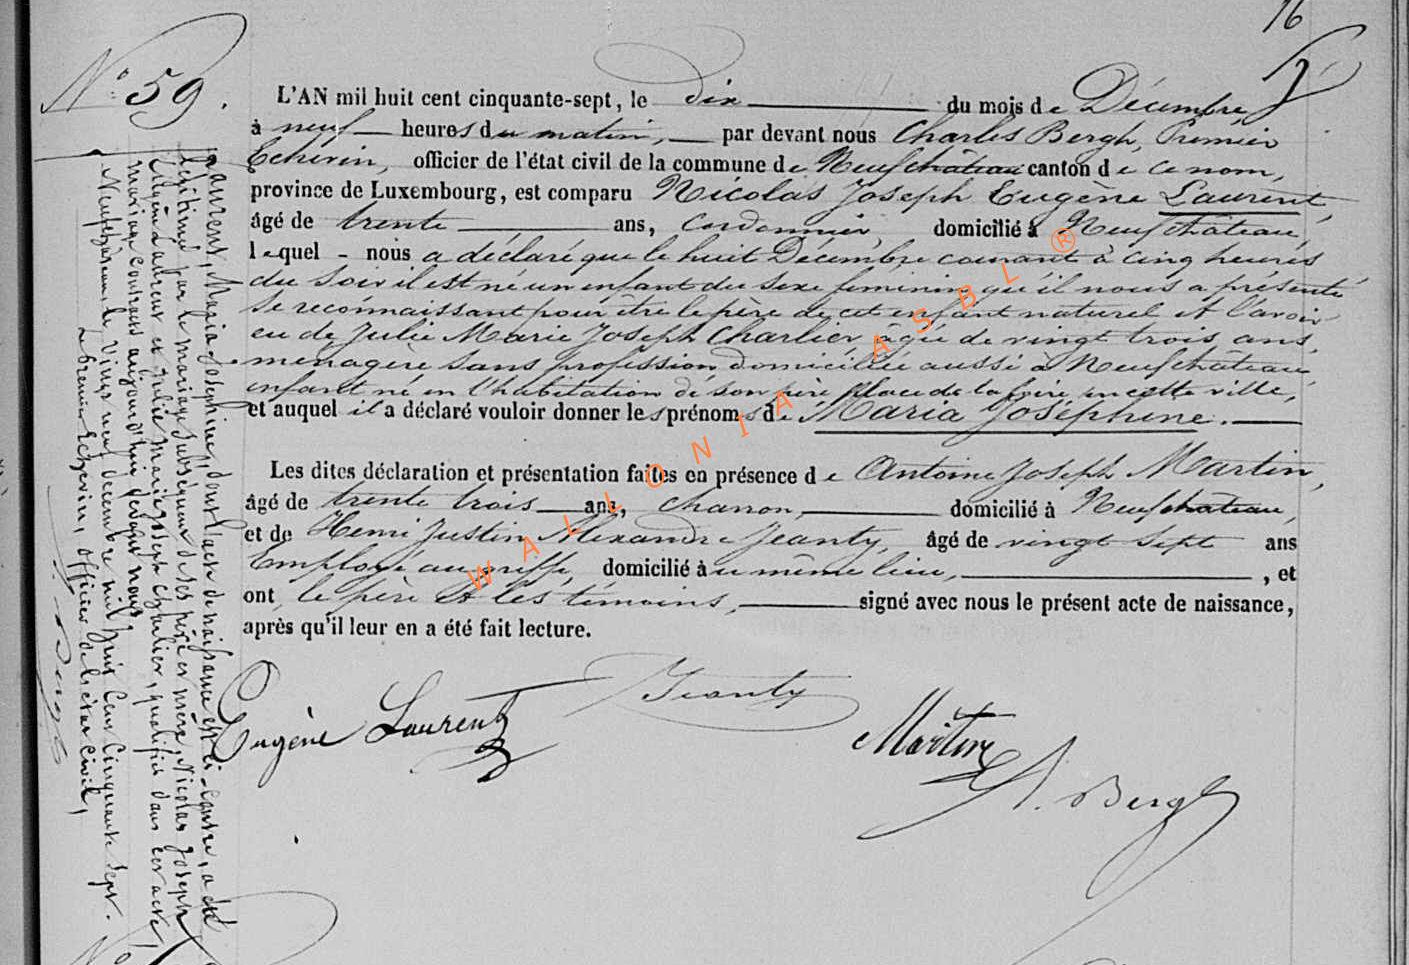 16
N° 59.
L'AN mil huit cent cinquante-sept, le dix du mois de Décembre,
à neuf heures du matin, par devant nous Charles Bergh, Premier
Echevin, officier de l'état civil de la commune de Neufchâteau canton de ce nom,
province de Luxembourg, est comparu Nicolas Joseph Eugène Laurent,
âgé de trente ans, Cordonnier, domicilié à Neufchâteau,
lequel - nous a déclaré que le huit Décembre courant à cinq heures
du soir il est né un enfant du sexe feminin qu'il nous a présenté
se reconnaissant pour être le père de cet enfant naturel et l'avoir
eu de Julie Marie Joseph Charlier, âgée de vingt trois ans,
menagère sans profession domiciliée aussi à Neufchâteau
enfant né en l'habitation de son père place de la foire, en cette ville,
et auquel il a déclaré vouloir donner les prénoms de Maria Joséphine.
Les dites déclaration et présentation faites en présence de Antoine Joseph Martin,
âgé de trente trois ans, charron, domicilié à Neufchâteau,
et de Henri Justin Alexandre Jeanty, âgé de vingt sept ans
Employé au greffe, domicilié au même lieu, , et
ont, le père et les témoins, signé avec nous le présent acte de naissance,
après qu'il leur en a été fait lecture.
Eugène Laurent
Jeanty
Martin
Bergh
Laurent, Maria Joséphine, dont l'acte de naissance est ci-contre, a été
légitimée par le mariage subséquent de ses père et mère, Nicolas Joseph
Eugène Laurent et Julie Marie Joseph Charlier, qualifiés dans cet acte,
mariage contracté aujourd'hui devant nous,
Neufchâteau, le vingt neuf décembre mil huit cent cinquante sept.
Le Premier Echevin, officier de l'état civil,
Bergh
WALLONIA ASBL ®